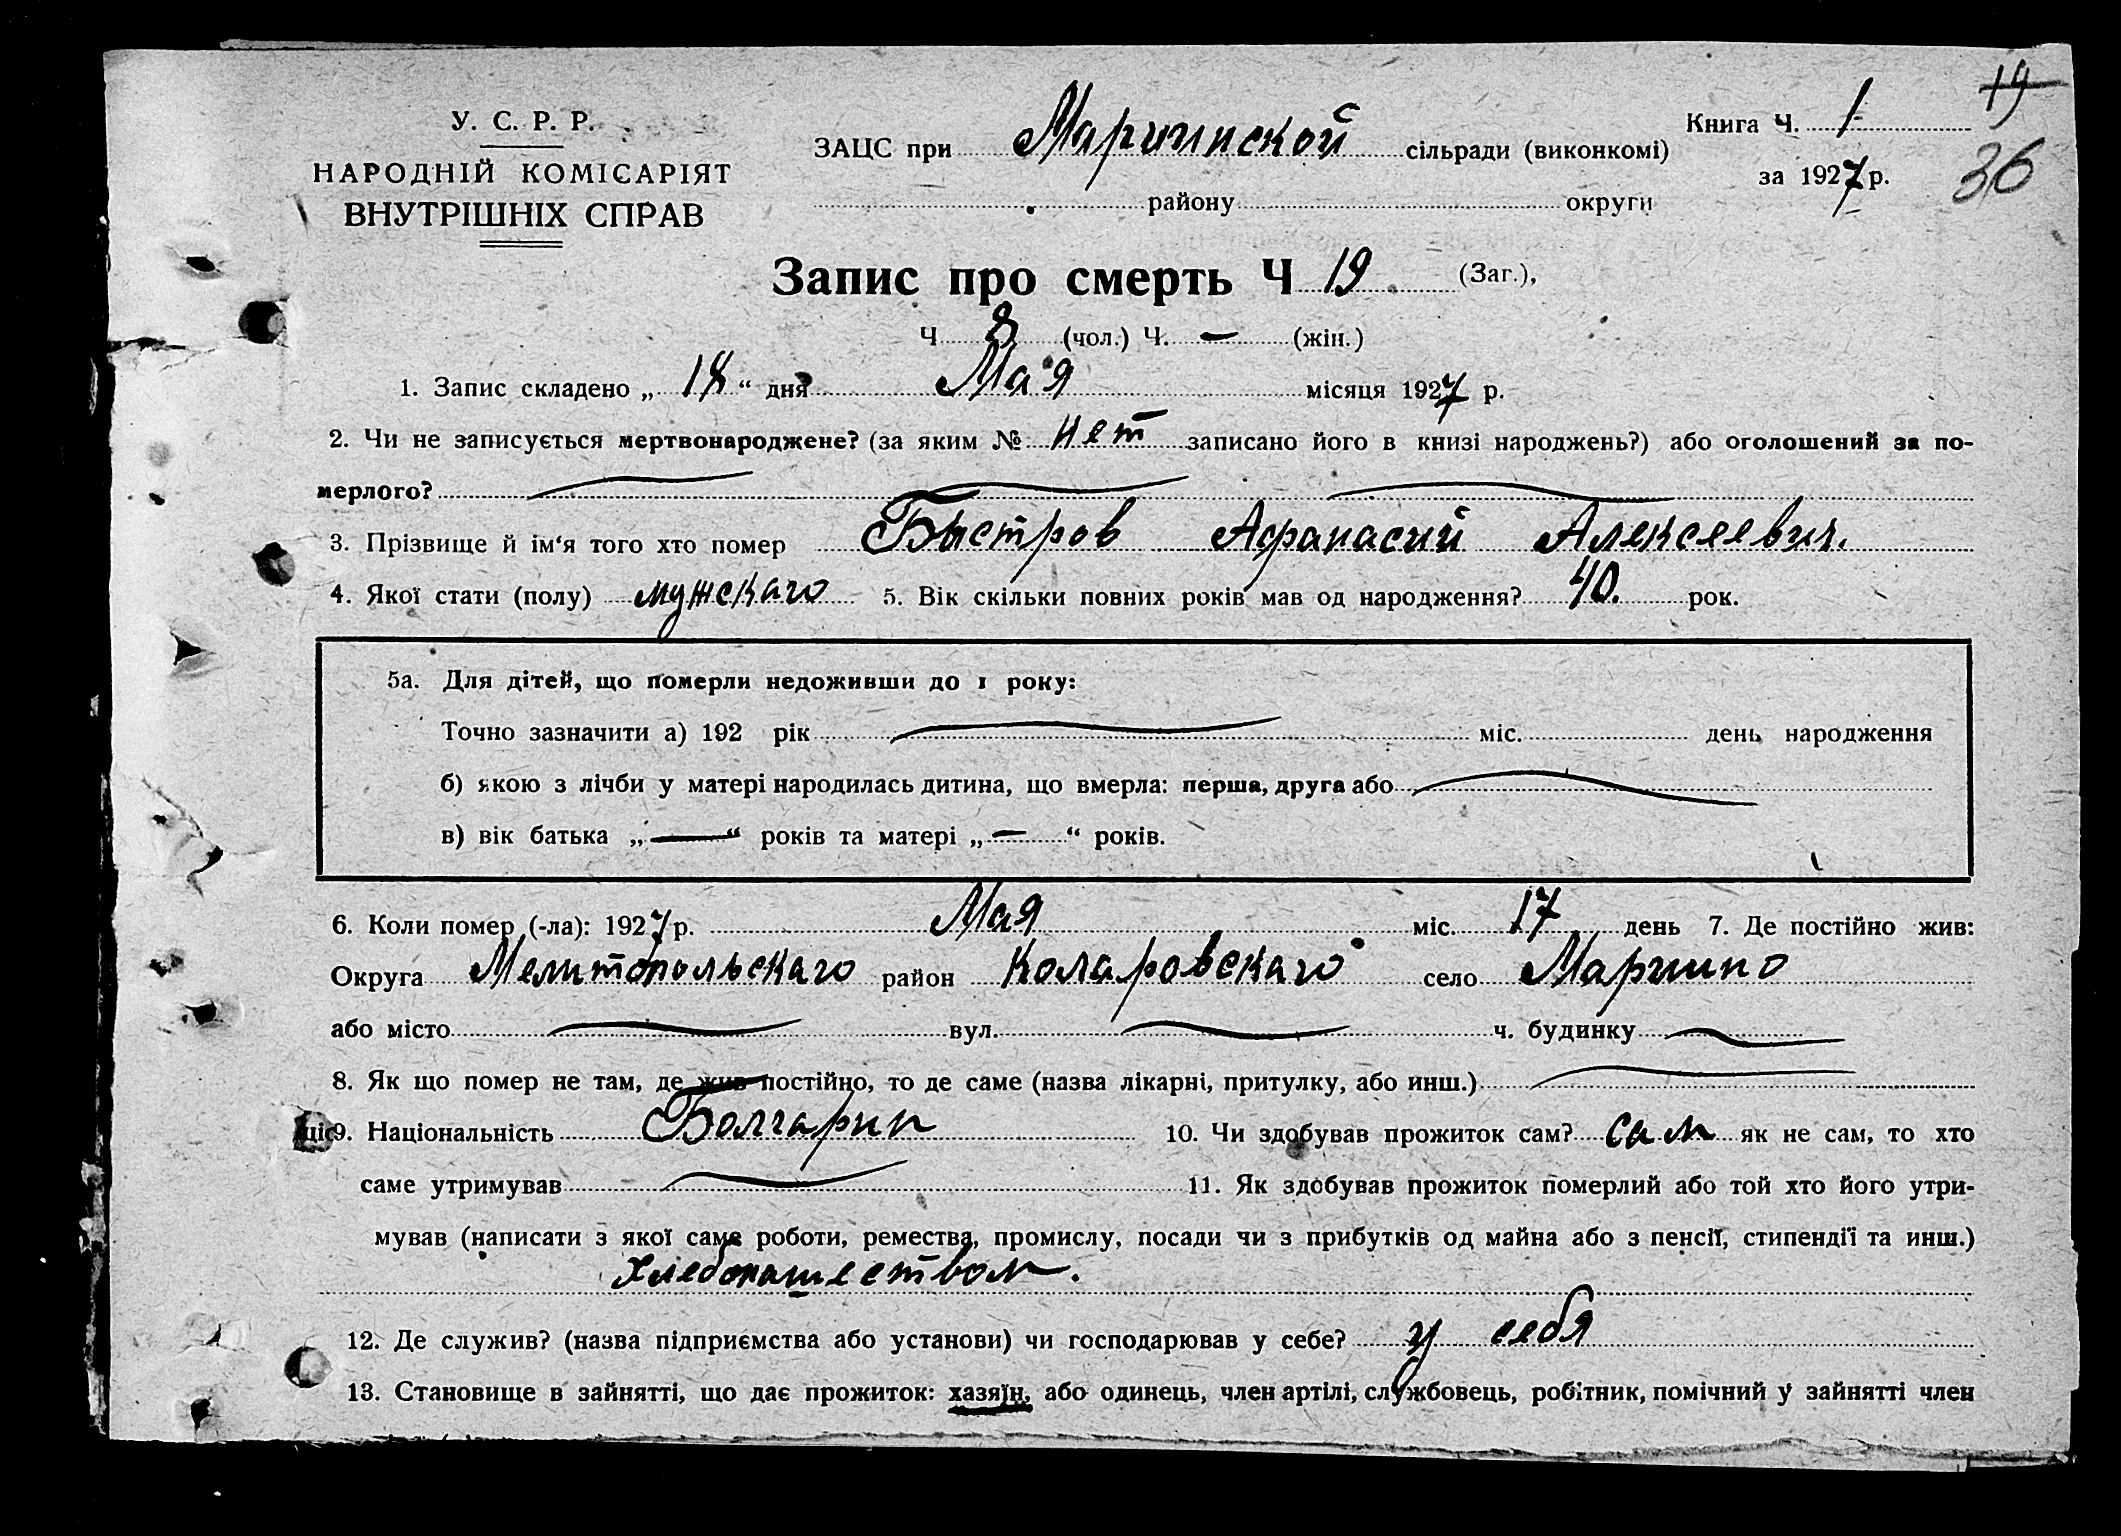 19
36
У. С. Р. Р.
НАРОДНІЙ КОМІСАРІЯТ
ВНУТРІШНІХ СПРАВ
ЗАЦС при Мариинской сільради (виконкомі)
району округи
Книга Ч. 1
за 1927 р.
Запис про смерть Ч 19 (Заг.),
Ч 8 (чол.) Ч. — (жін.)
1. Запис складено „ 18 “ дня Мая місяця 1927 р.
2. Чи не записується мертвонароджене? (за яким № нет записано його в книзі народжень?) або оголошений за по-
мерлого?
3. Прізвище й ім‘я того хто помер Быстров Афанасий Алексеевич.
4. Якої стати (полу) мужскаго 5. Вік скільки повних років мав од народження? 40. рок.
5а. Для дітей, що померли недоживши до 1 року:
Точно зазначити а) 192 рік міс. день народження
б) якою з лічби у матері народилась дитина, що вмерла: перша, друга або
в) вік батька „—“ років та матері „—“ років.
6. Коли помер (-ла): 1927 р. Мая міс. 17 день 7. Де постійно жив:
Округа Мелитопольскаго район Коларовскаго село Мариино
або місто вул. ч. будинку
8. Як що помер не там, де жив постійно, то де саме (назва лікарні, притулку, або инш.)
ціс 9. Національність Болгарин 10. Чи здобував прожиток сам? сам як не сам, то хто
саме утримував 11. Як здобував прожиток померлий або той хто його утри-
мував (написати з якої саме роботи, ремества, промислу, посади чи з прибутків од майна або з пенсії, стипендії та инш.)
Хлебопашеством.
12. Де служив? (назва підприємства або установи) чи господарював у себе? у себя
13. Становище в зайнятті, що дає прожиток: хазяїн, або одинець, член артілі, службовець, робітник, помічний у зайнятті член